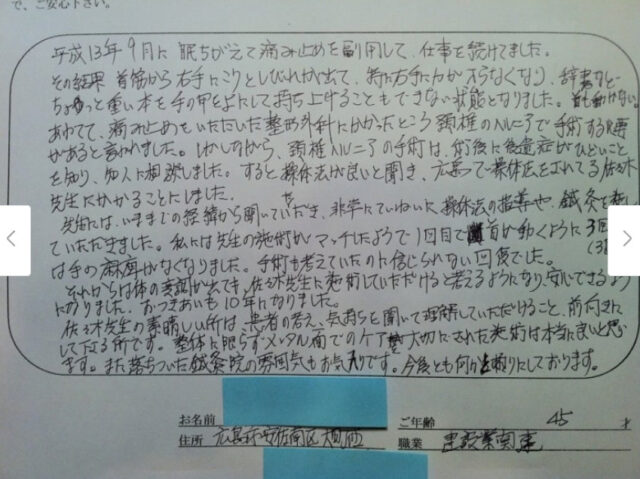 で、ご安心下さい。
平成13年9月に 眠ちがえて痛み止めを副用して、仕事を続けてました。
その結果 首筋から右手にこりとしびれが出て、特に右手に力が入らなくなり、辞書など
ちょっと重い本を手の甲を上にして持ち上げることもできない状態となりました。首も動かない
あわてて、痛み止めをいただいた整形外科にかかったところ 頚椎のヘルニアで手術する必要
があると言われました。しかしながら、頚椎ヘルニアの手術は、術後に後遺症がひどいこと
を知り、知人に相談しました。すると操体法が良いと聞き、広島で操体法をされてる佐々木
先生にかかることにしました。
先生には、いままでの経緯から聞いていただき、非常にていねいに操体法の指導や、鍼灸を
していただきました。私には先生の施術がマッチしたようで1回目で首が動くように 3回
は手の麻痺がなくなりました。手術も考えていたのに信じられない回復でした。
それからは体の変調が出ても、佐々木先生に施術していただけると考えるようになり、安心できるよう
になりました。おつきあいも10年になりました。
佐々木先生の素晴しい所は、患者の考え、気持ちを聞いて理解していただけること、前向きに
して下さる所です。整体に限らずメンタル面でのケアも大切にされた施術は本当に良いと思い
ます。また落ちついた鍼灸院の雰囲気もお気に入りです。今後とも何かと頼りにしております。
お名前 ご年齢 45 才
住所 広島市安佐南区 職業 建設業関連